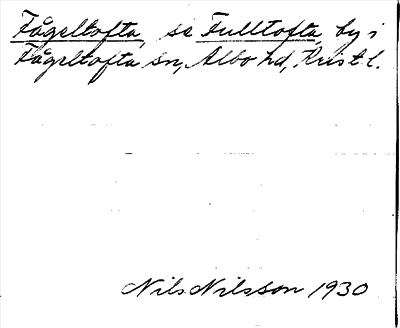 Fågeltofta, se Fulltofta, by i
Fågeltofta sn, Albo hd, Krist. l.
Nils Nilsson 1930